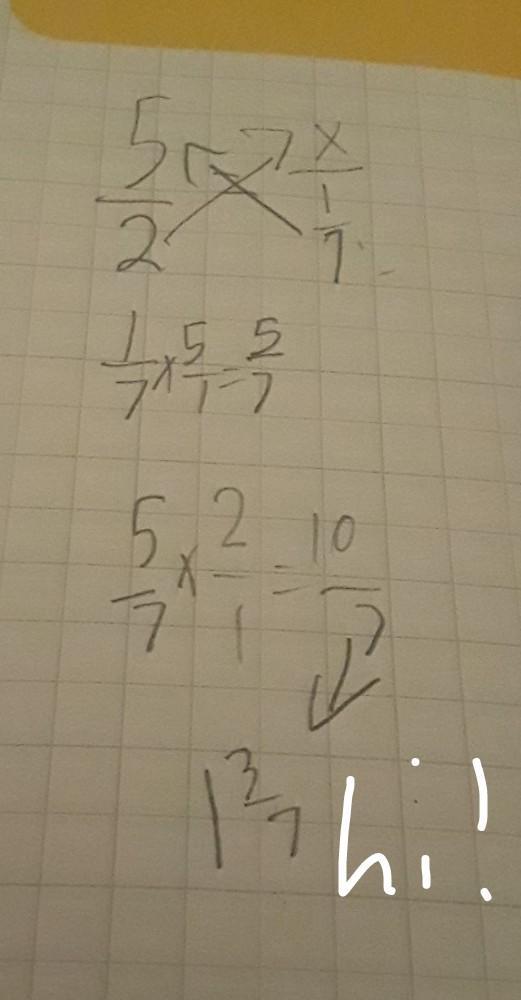 5/2 x/(1/7)
1/7 x 5/1 = 5/7
5/7 x 2/1 = 10/7
1 3/7 hi!